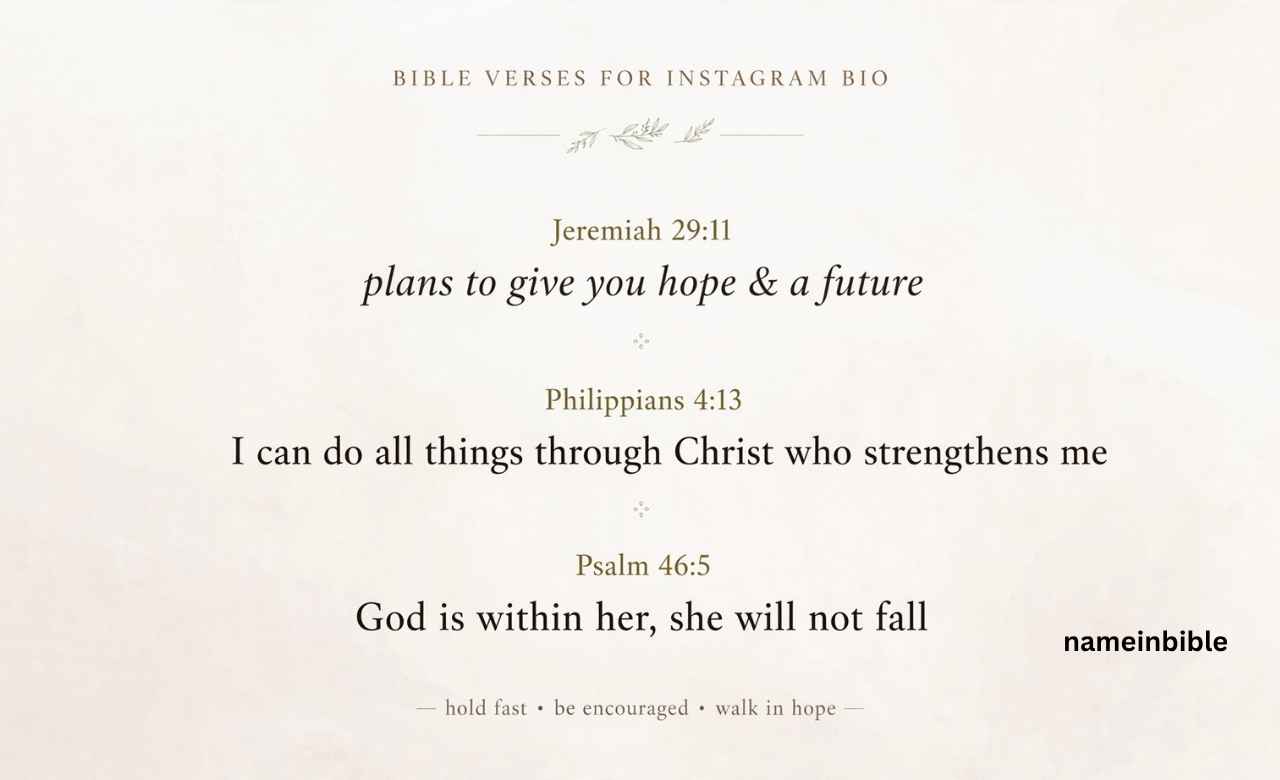 BIBLE VERSES FOR INSTAGRAM BIO
Jeremiah 29:11
plans to give you hope & a future
Philippians 4:13
I can do all things through Christ who strengthens me
Psalm 46:5
God is within her, she will not fall
nameinbible
— hold fast • be encouraged • walk in hope —